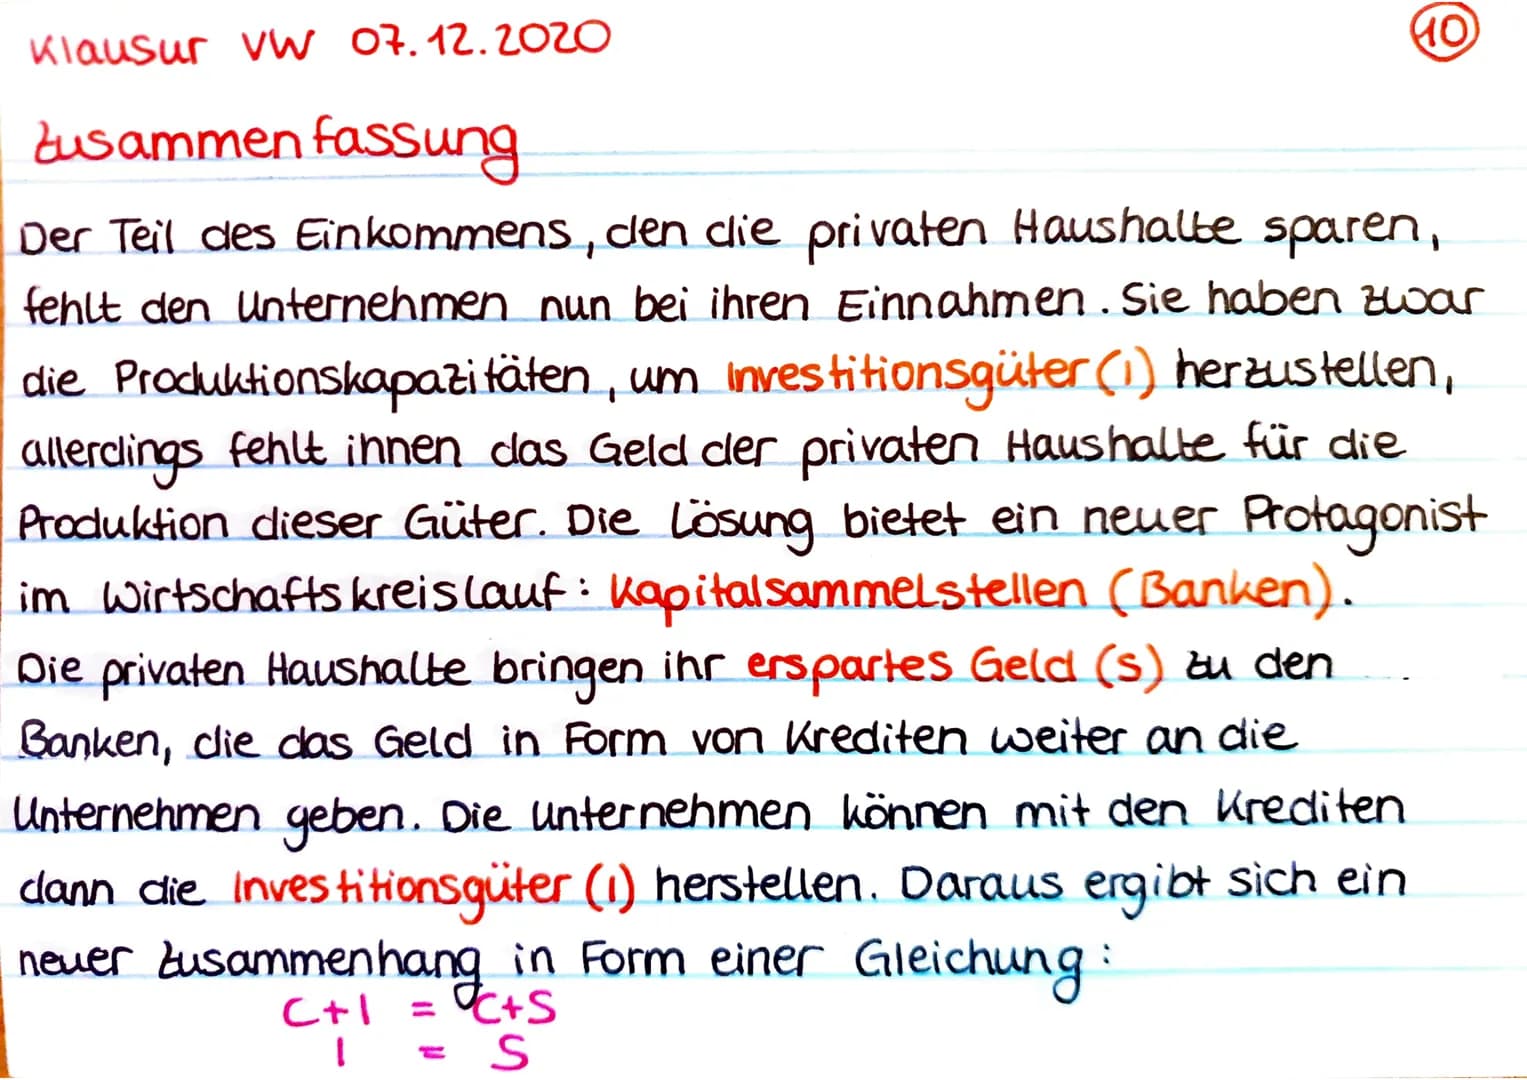 Klausur VW 07.12.2020
10
Zusammenfassung
Der Teil des Einkommens, den die privaten Haushalte sparen,
fehlt den Unternehmen nun bei ihren Einnahmen. Sie haben zwar
die Produktionskapazitäten, um Investitionsgüter (I) herzustellen,
allerdings fehlt ihnen das Geld der privaten Haushalte für die
Produktion dieser Güter. Die Lösung bietet ein neuer Protagonist
im Wirtschaftskreislauf: Kapitalsammelstellen (Banken).
Die privaten Haushalte bringen ihr erspartes Geld (S) zu den
Banken, die das Geld in Form von Krediten weiter an die
Unternehmen geben. Die Unternehmen können mit den Krediten
dann die Investitionsgüter (I) herstellen. Daraus ergibt sich ein
neuer Zusammenhang in Form einer Gleichung:
C+I = C+S
I = S